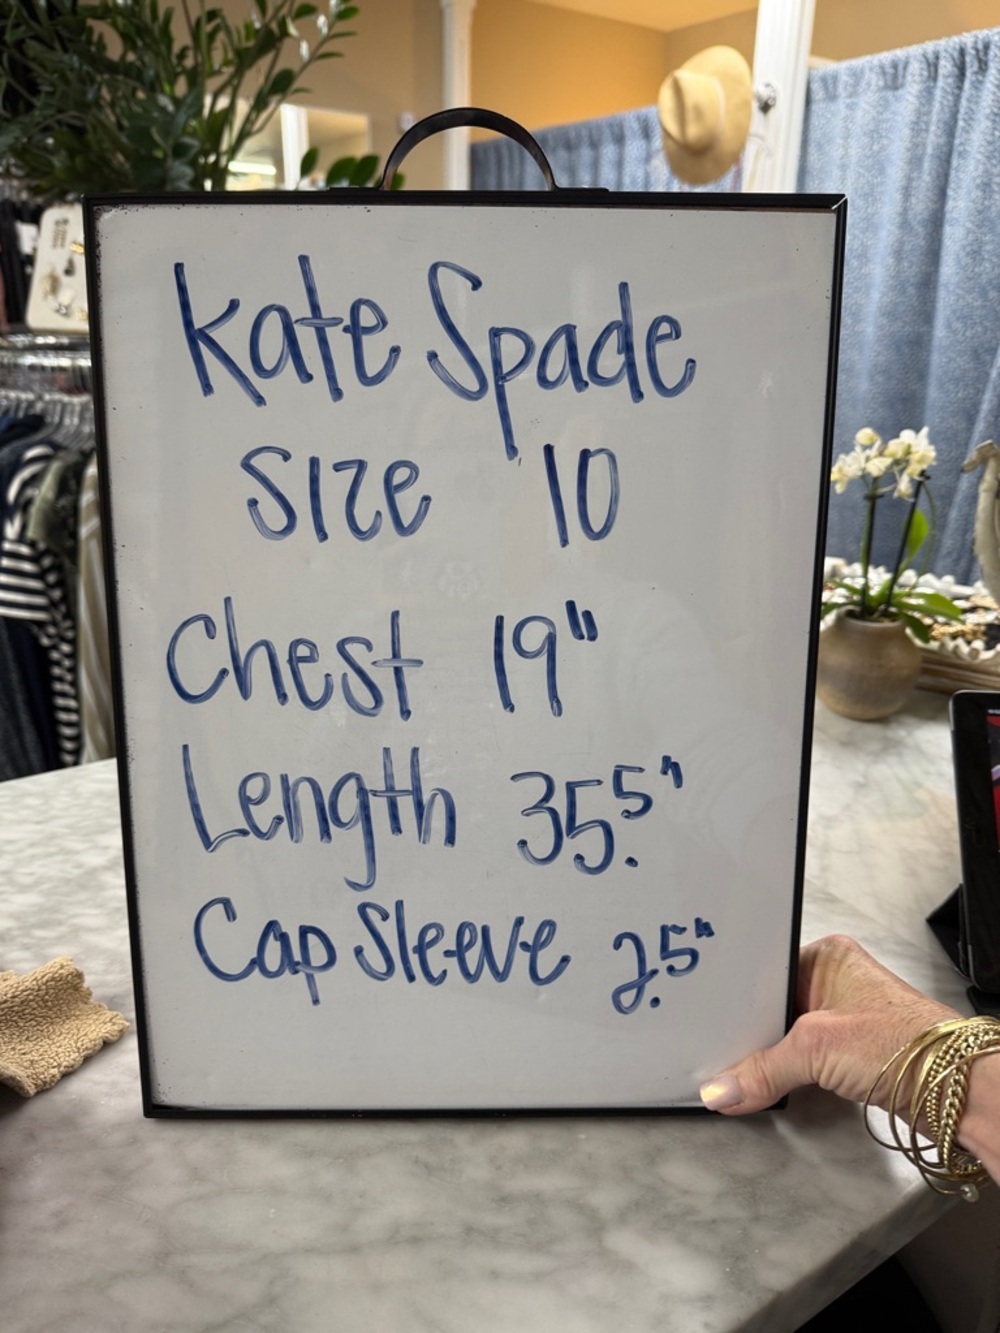 Kate Spade
Size 10
Chest 19"
Length 35.5"
Cap Sleeve 2.5"